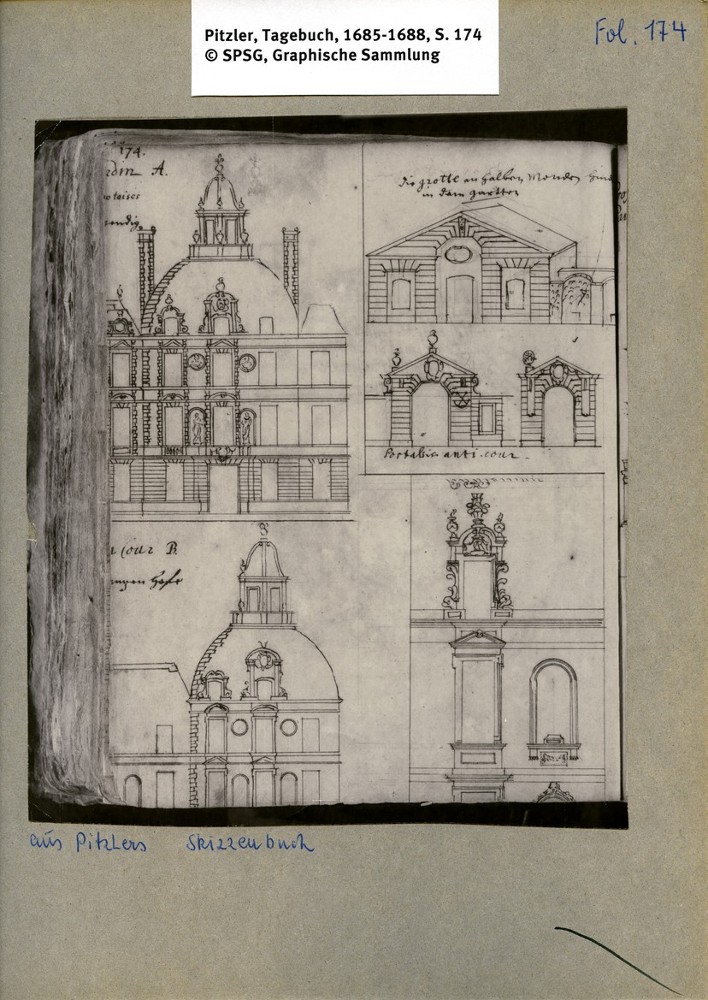 Pitzler, Tagebuch, 1685-1688, S. 174
© SPSG, Graphische Sammlung
Fol. 174
174.
A.
die grotte en halben Monden
in dem garten
anti-cour
cour B
aus Pitzlers Skizzenbuch